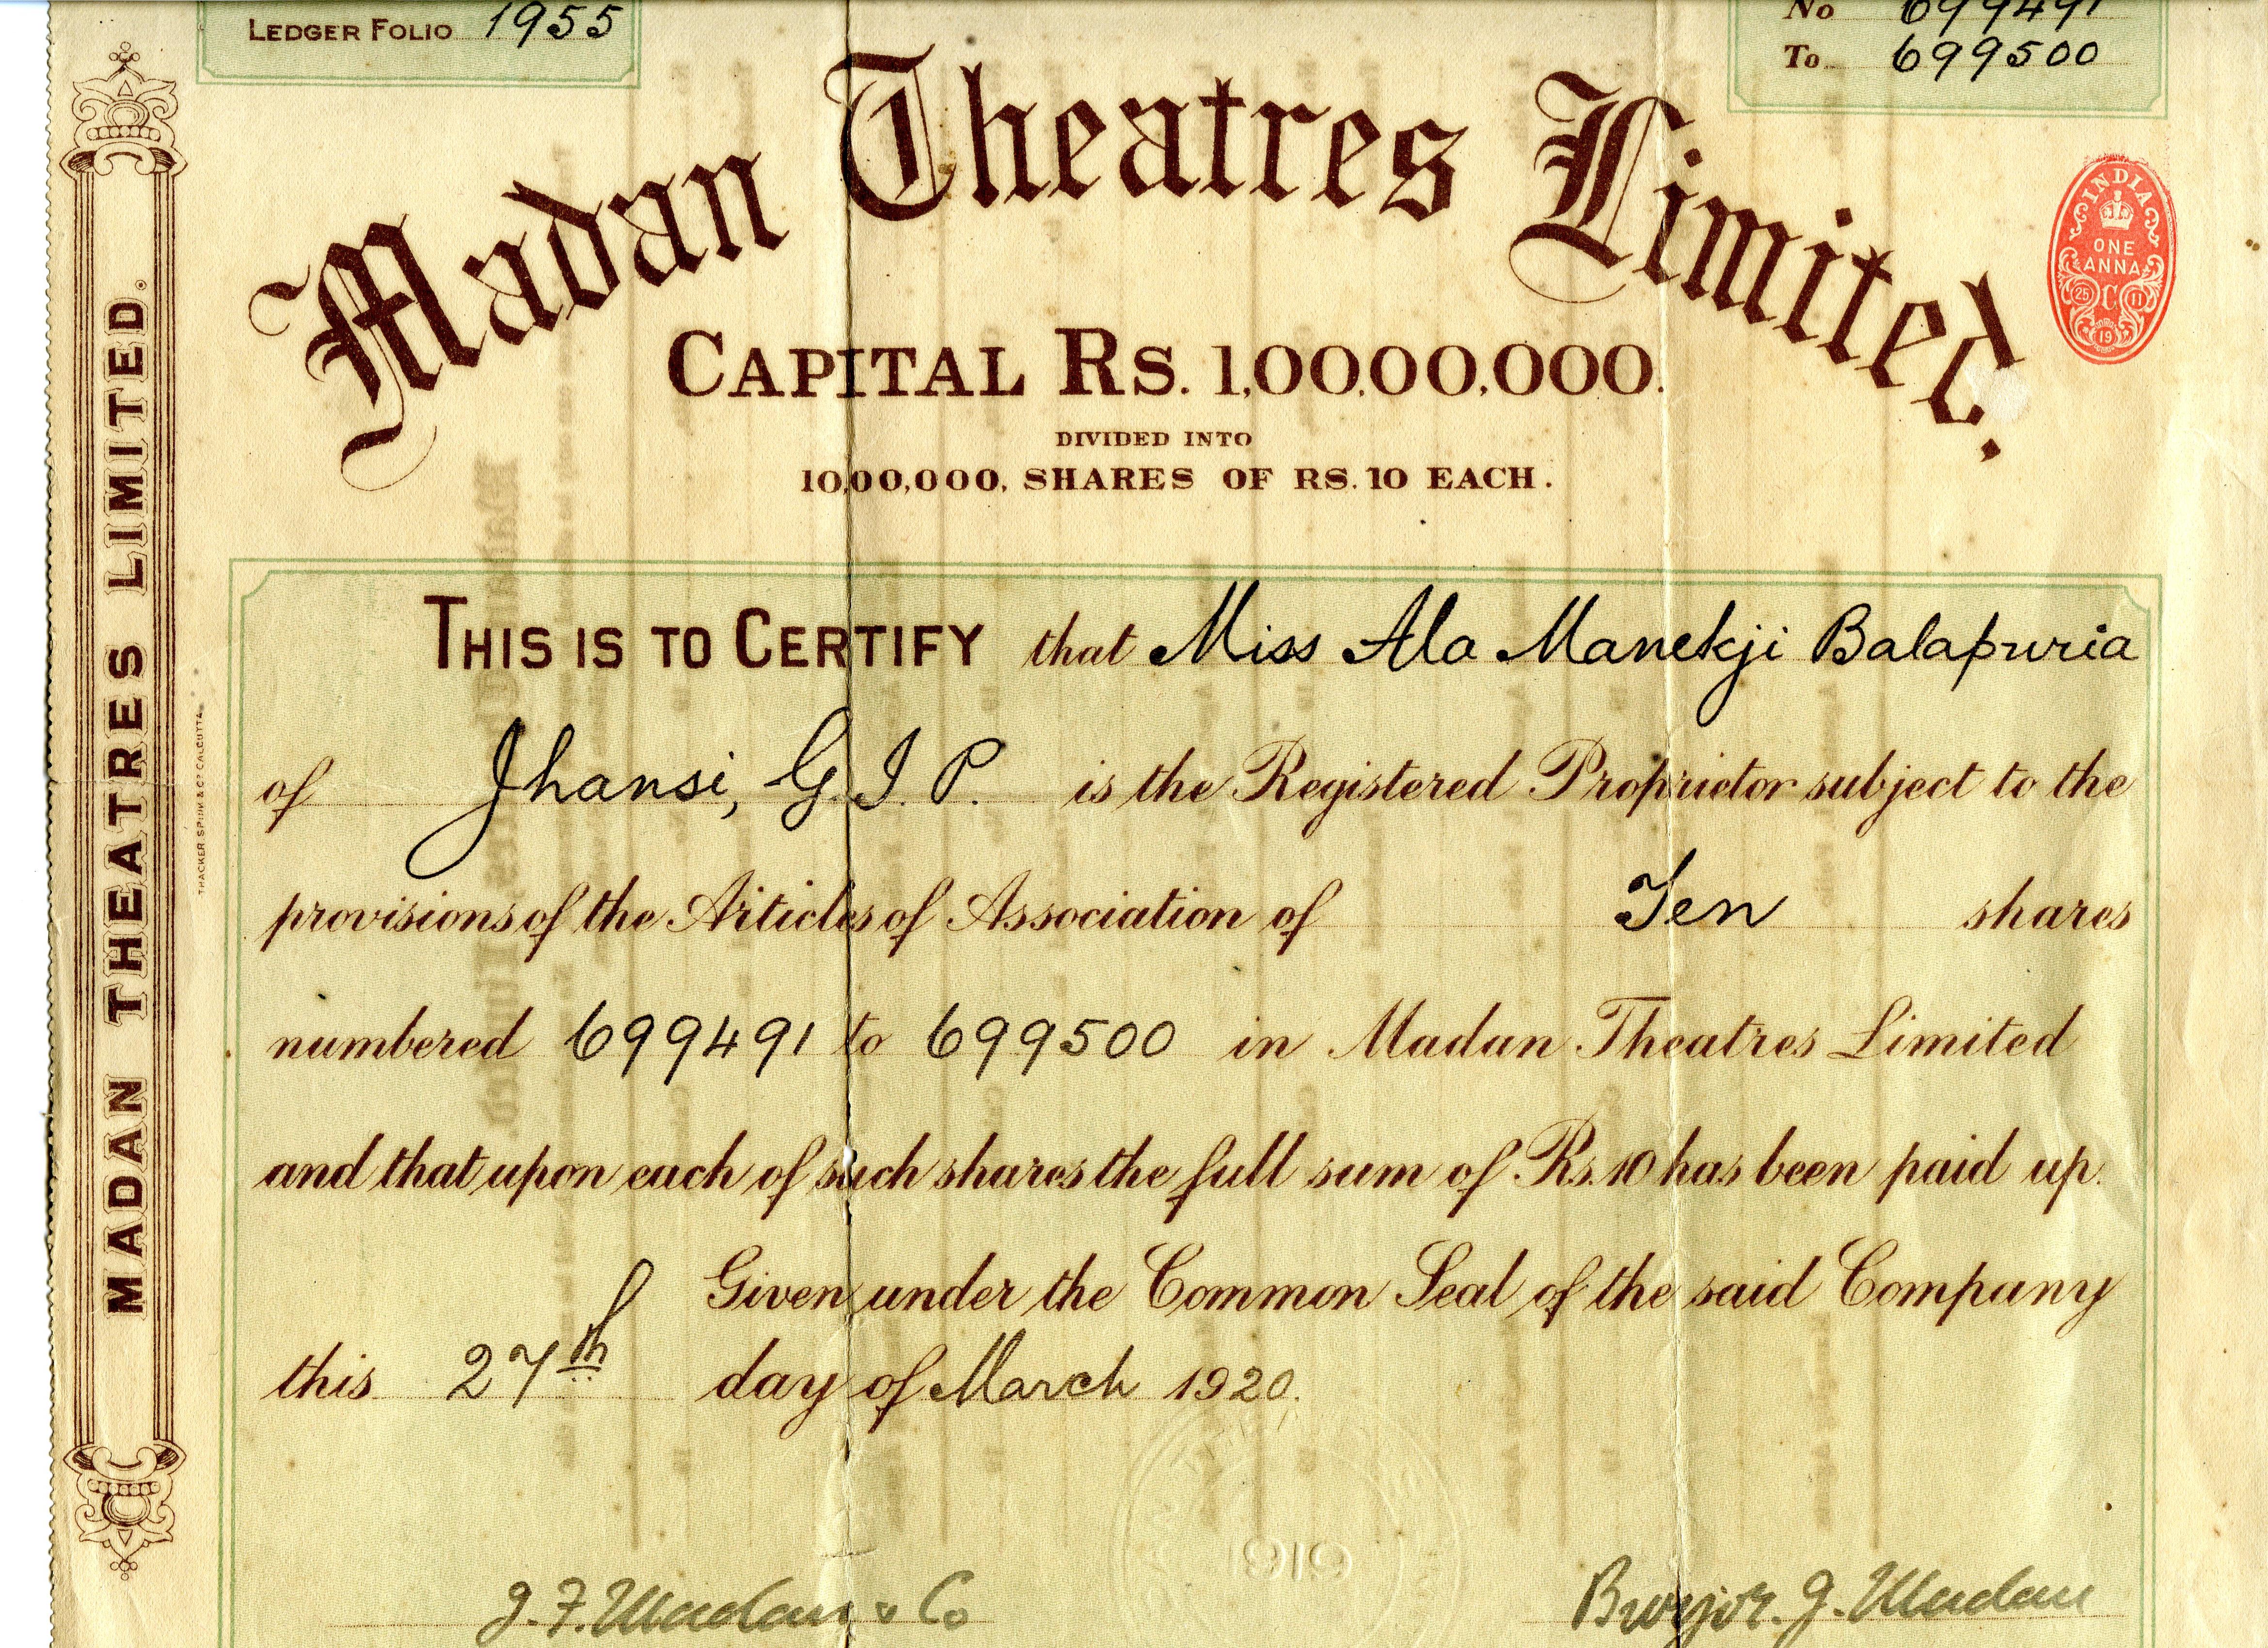 LEDGER FOLIO 1955
No 699491
To 699500
Madan Theatres Limited.
INDIA
ONE
ANNA
25 C 11
19
CAPITAL RS. 1,00,00,000.
DIVIDED INTO
10,00,000, SHARES OF RS. 10 EACH.
MADAN THEATRES LIMITED.
THACKER SPINK & CO CALCUTTA
THIS IS TO CERTIFY that Miss Ala Manekji Balapuria
of Jhansi, G. I. P. is the Registered Proprietor subject to the
provisions of the Articles of Association of Ten shares
numbered 699491 to 699500 in Madan Theatres Limited
and that upon each of such shares the full sum of Rs. 10 has been paid up.
Given under the Common Seal of the said Company
this 27th day of March 1920.
1919
J. F. Madan & Co
Burjor. J. Madan